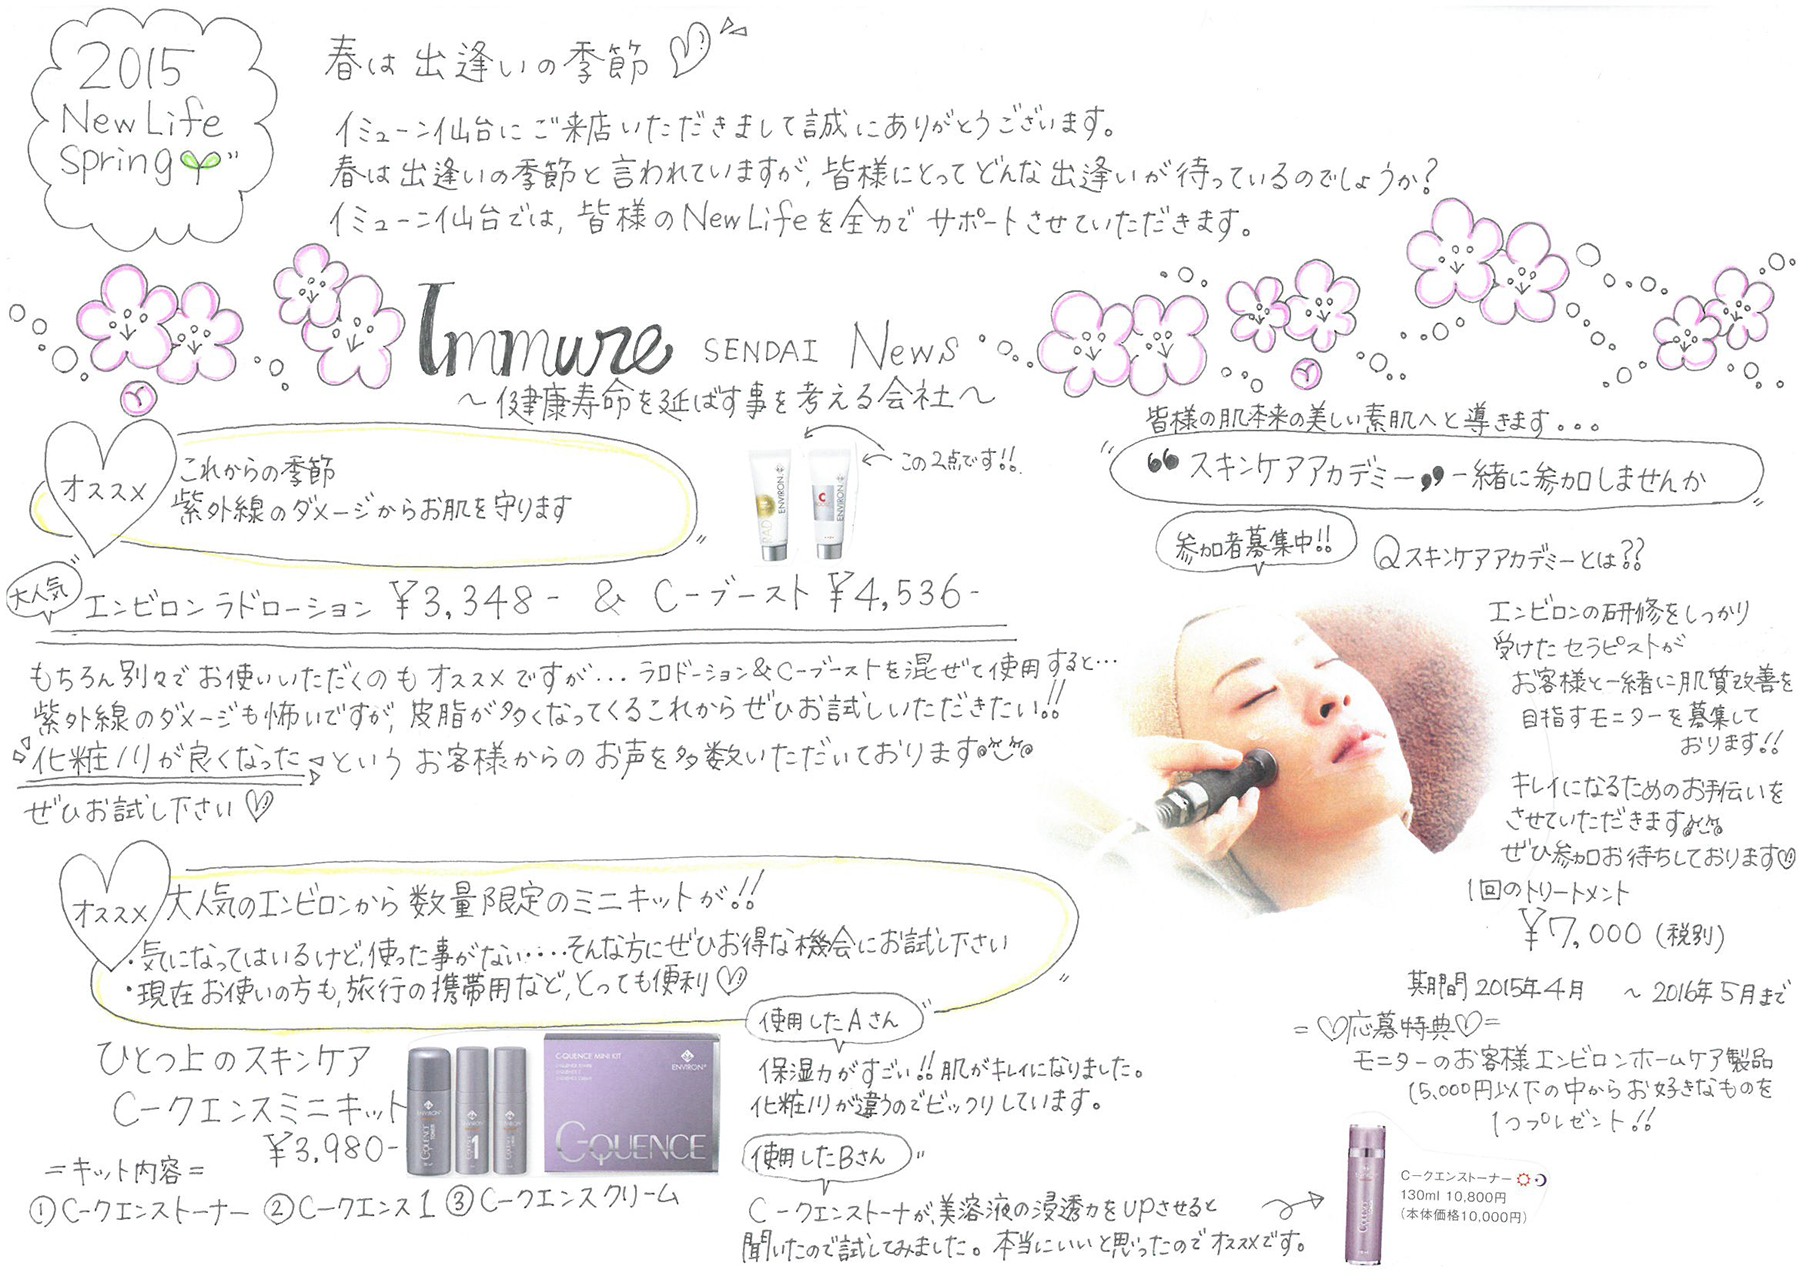 2015
New Life
Spring
春は出逢いの季節
イミューン仙台にご来店いただきまして誠にありがとうございます。
春は出逢いの季節と言われていますが、皆様にとってどんな出逢いが待っているのでしょうか?
イミューン仙台では、皆様のNew Lifeを全力でサポートさせていただきます。
Immure SENDAI News
～健康寿命を延ばす事を考える会社～
オススメ
これからの季節
紫外線のダメージからお肌を守ります
この2点です!!
RAD
ENVIRON
C
ENVIRON
大人気
エンビロン ラドローション ¥3,348- & C-ブースト ¥4,536-
もちろん別々でお使いいただくのもオススメですが...ラロドーション&C-ブーストを混ぜて使用すると…
紫外線のダメージも怖いですが、皮脂が多くなってくるこれからぜひお試しいただきたい!!
化粧ノリが良くなった というお客様からのお声を多数いただいております
ぜひお試し下さい
オススメ
大人気のエンビロンから数量限定のミニキットが!!
・気になってはいるけど、使った事がない‥‥そんな方にぜひお得な機会にお試し下さい
・現在お使いの方も、旅行の携帯用など、とっても便利
ひとつ上のスキンケア
C-クエンスミニキット
¥3,980-
=キット内容=
①C-クエンストーナー ②C-クエンス1 ③C-クエンスクリーム
C-QUENCE MINI KIT
ENVIRON
C-QUENCE
使用したAさん
保湿力がすごい!!肌がキレイになりました。
化粧ノリが違うのでビックリしています。
使用したBさん
C-クエンストーナが、美容液の浸透力をUPさせると
聞いたので試してみました。本当にいいと思ったのでオススメです。
皆様の肌本来の美しい素肌へと導きます...
“スキンケアアカデミー”一緒に参加しませんか
参加者募集中!!
Qスキンケアアカデミーとは??
エンビロンの研修をしっかり
受けたセラピストが
お客様と一緒に肌質改善を
目指すモニターを募集して
おります!!
キレイになるためのお手伝いを
させていただきます
ぜひ参加お待ちしております
1回のトリートメント
¥7,000 (税別)
期間 2015年4月 ～2016年5月まで
=応募特典=
モニターのお客様エンビロンホームケア製品
15,000円以下の中からお好きなものを
1つプレゼント!!
C-クエンストーナー
130ml 10,800円
(本体価格10,000円)